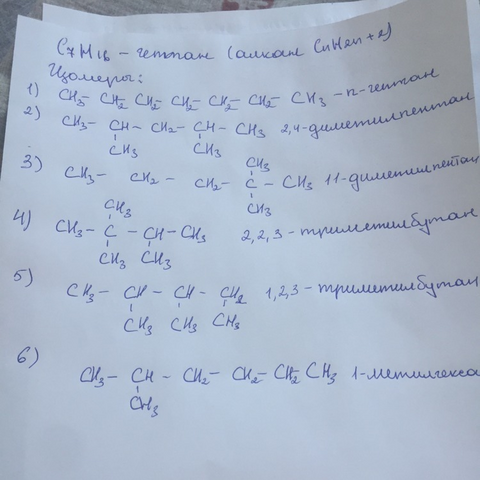 C7H16 - гептан (алкан CnH2n+2)
Изомеры:
1) CH3- CH2- CH2- CH2- CH2- CH2- CH3 - n-гептан
2) CH3- CH - CH2 - CH - CH3 2,4-диметилпентан
CH3 CH3
CH3
3) CH3- CH2 - CH2- C - CH3 11-диметилпентан
CH3
CH3
4) CH3- C - CH - CH3 2,2,3 - триметилбутан
CH3 CH3
5) CH3 - CH - CH - CH2 1,2,3 - триметилбутан
CH3 CH3 CH3
6) CH3- CH - CH2- CH2- CH2- CH3 1-метилгекса
CH3